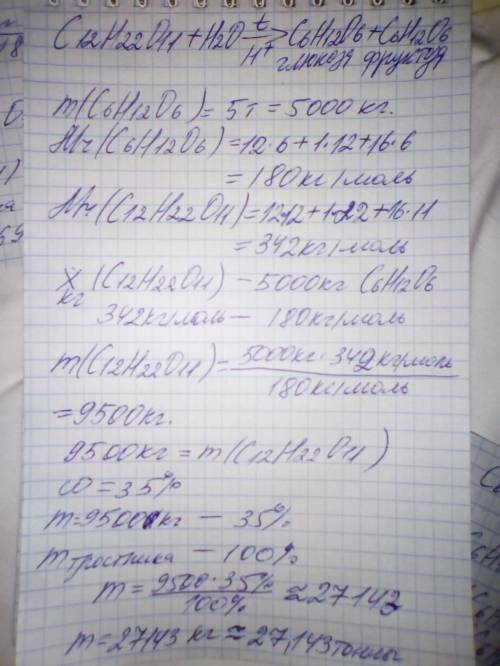 C12H22O11 + H2O t→ H+ C6H12O6 + C6H12O6
глюкоза фруктоза
m(C6H12O6) = 5т = 5000 кг.
Mr(C6H12O6) = 12·6+1·12+16·6
= 180кг/моль
Mr(C12H22O11) = 12·12+1·22+16·11
= 342кг/моль
X кг (C12H22O11) – 5000кг C6H12O6
342кг/моль – 180кг/моль
m(C12H22O11) = 5000кг · 342кг/моль / 180кг/моль
= 9500кг.
9500кг = m(C12H22O11)
ω = 35%
m = 9500кг – 35%
m тростника – 100%
m = 9500·35% / 100% ≈ 27143
m = 27143 кг ≈ 27,143 тонны